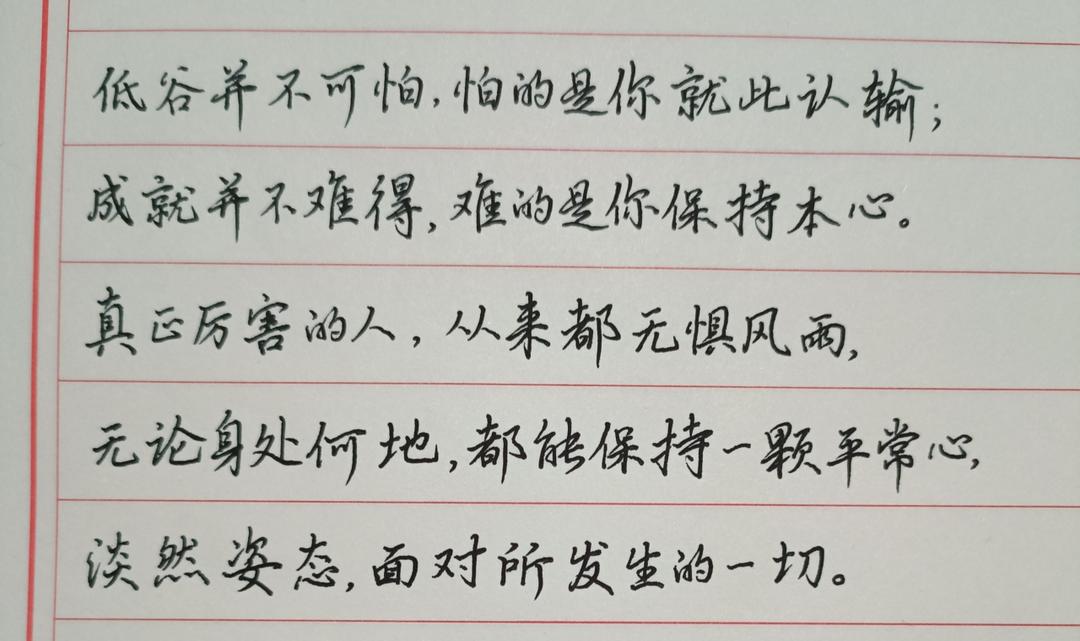 低谷并不可怕,怕的是你就此认输;
成就并不难得,难的是你保持本心。
真正厉害的人,从来都无惧风雨,
无论身处何地,都能保持一颗平常心,
淡然姿态,面对所发生的一切。